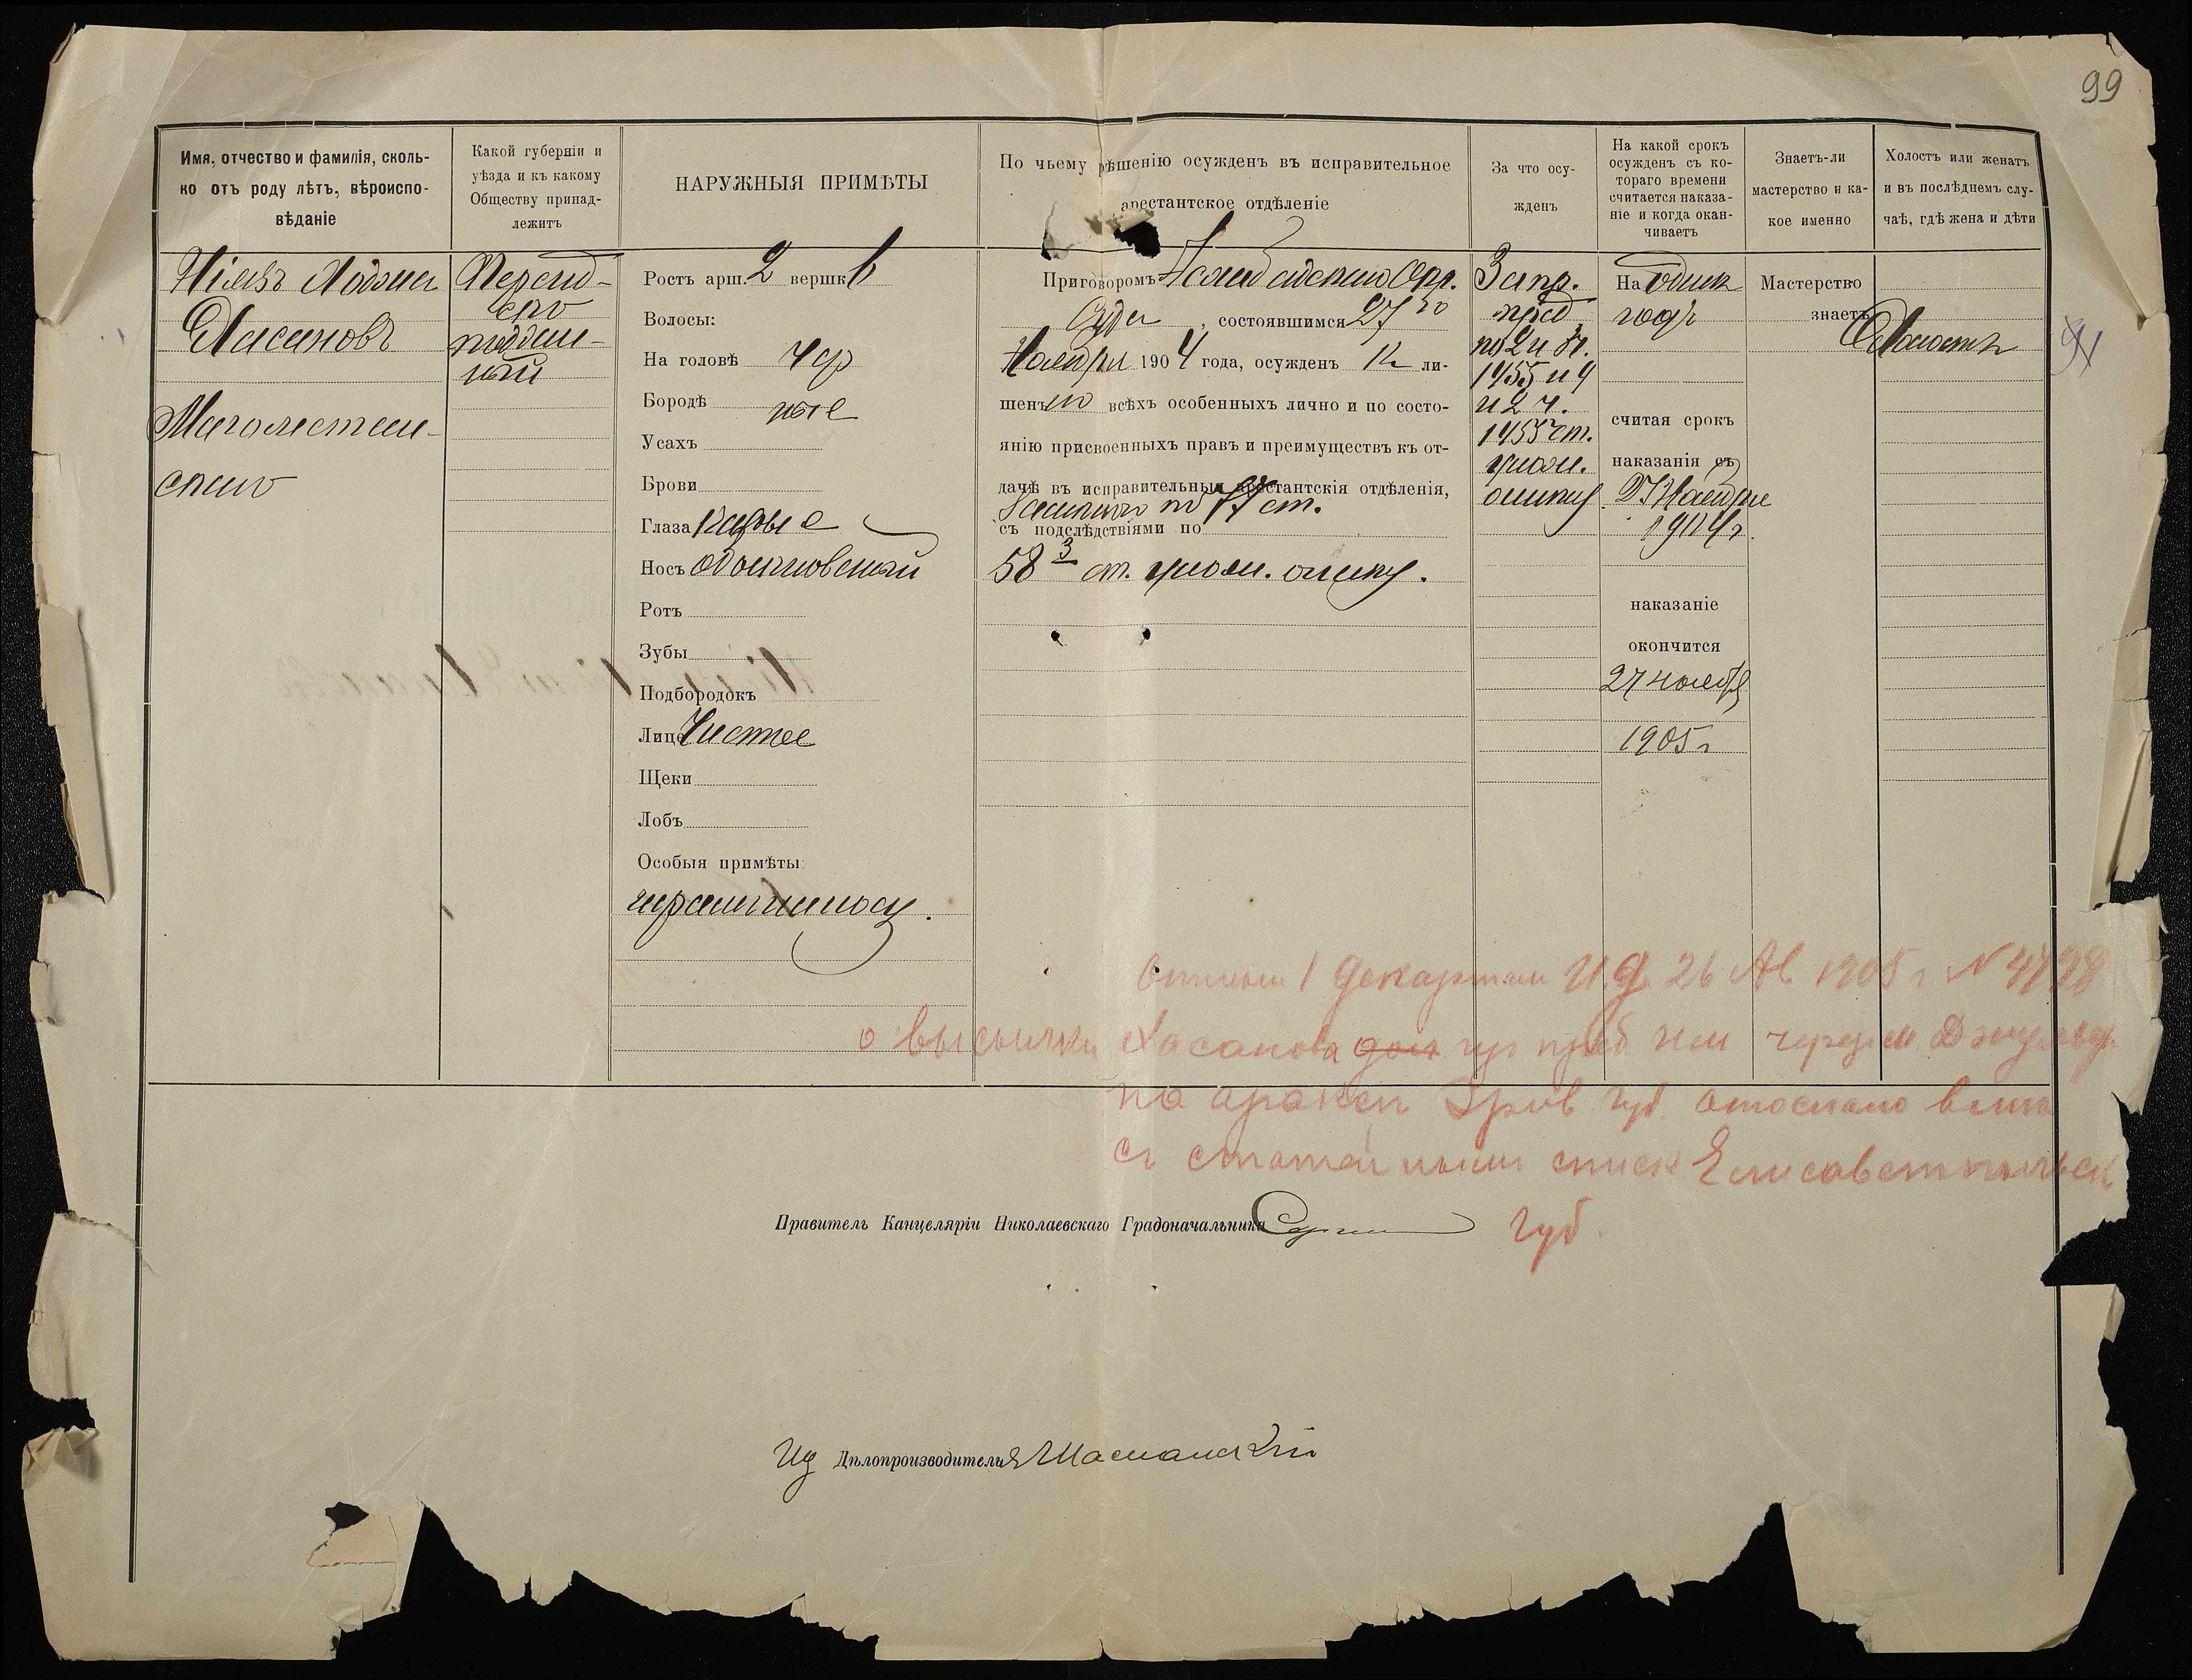 99
Имя, отчество и фамилія, сколь-
ко отъ роду лѣтъ, вѣроиспо-
вѣданіе
Какой губерніи и
уѣзда и къ какому
Обществу принад-
лежитъ
НАРУЖНЫЯ ПРИМѢТЫ
По чьему рѣшенію осужденъ въ исправительное
арестантское отдѣленіе
За что осу-
жденъ
На какой срокъ
осужденъ съ ко-
тораго времени
считается наказа-
ніе и когда окан-
чиваетъ
Знаетъ-ли
мастерство и ка-
кое именно
Холостъ или женатъ
и въ послѣднемъ слу-
чаѣ, гдѣ жена и дѣти
Ніязъ Ходжа
Хасановъ
Магометан-
скаго
Персид-
скій
поддан-
ный
Ростъ арш. 2 вершк 6
Волосы:
На головѣ чер
Бородѣ ные
Усахъ
Брови
Глаза Каріе
Носъ обыкновенный
Ротъ
Зубы
Подбородокъ
Лице Чистое
Щеки
Лобъ
Особыя примѣты:
Приговоромъ Асхабадскаго Окр.
Суда, состоявшимся 27го
Ноября 1904 года, осужденъ къ ли-
шенію всѣхъ особенныхъ лично и по состо-
янію присвоенныхъ правъ и преимуществъ къ от-
дачѣ въ исправительныя арестантскія отдѣленія,
по 77 ст.
съ подслѣдствіями по
58 3 ст. улож. о наказ.
1455 и 4
и 2 ч.
1455 ст.
улож.
о наказ
На одинъ
годъ
считая срокъ
наказанія съ
27 Ноября
1904 г.
наказаніе
окончится
27 ноября
1905 г
Мастерство
знаетъ
Холостъ
91
1 Департам И.Д. 26 Ав 1905 г № 4798
о высылки Хасанова
Эрив. Губ. отослано вмѣс
съ статейным списк Елисаветпольск
Губ.
Правитель Канцеляріи Николаевскаго Градоначальника
Ид Дѣлопроизводителя